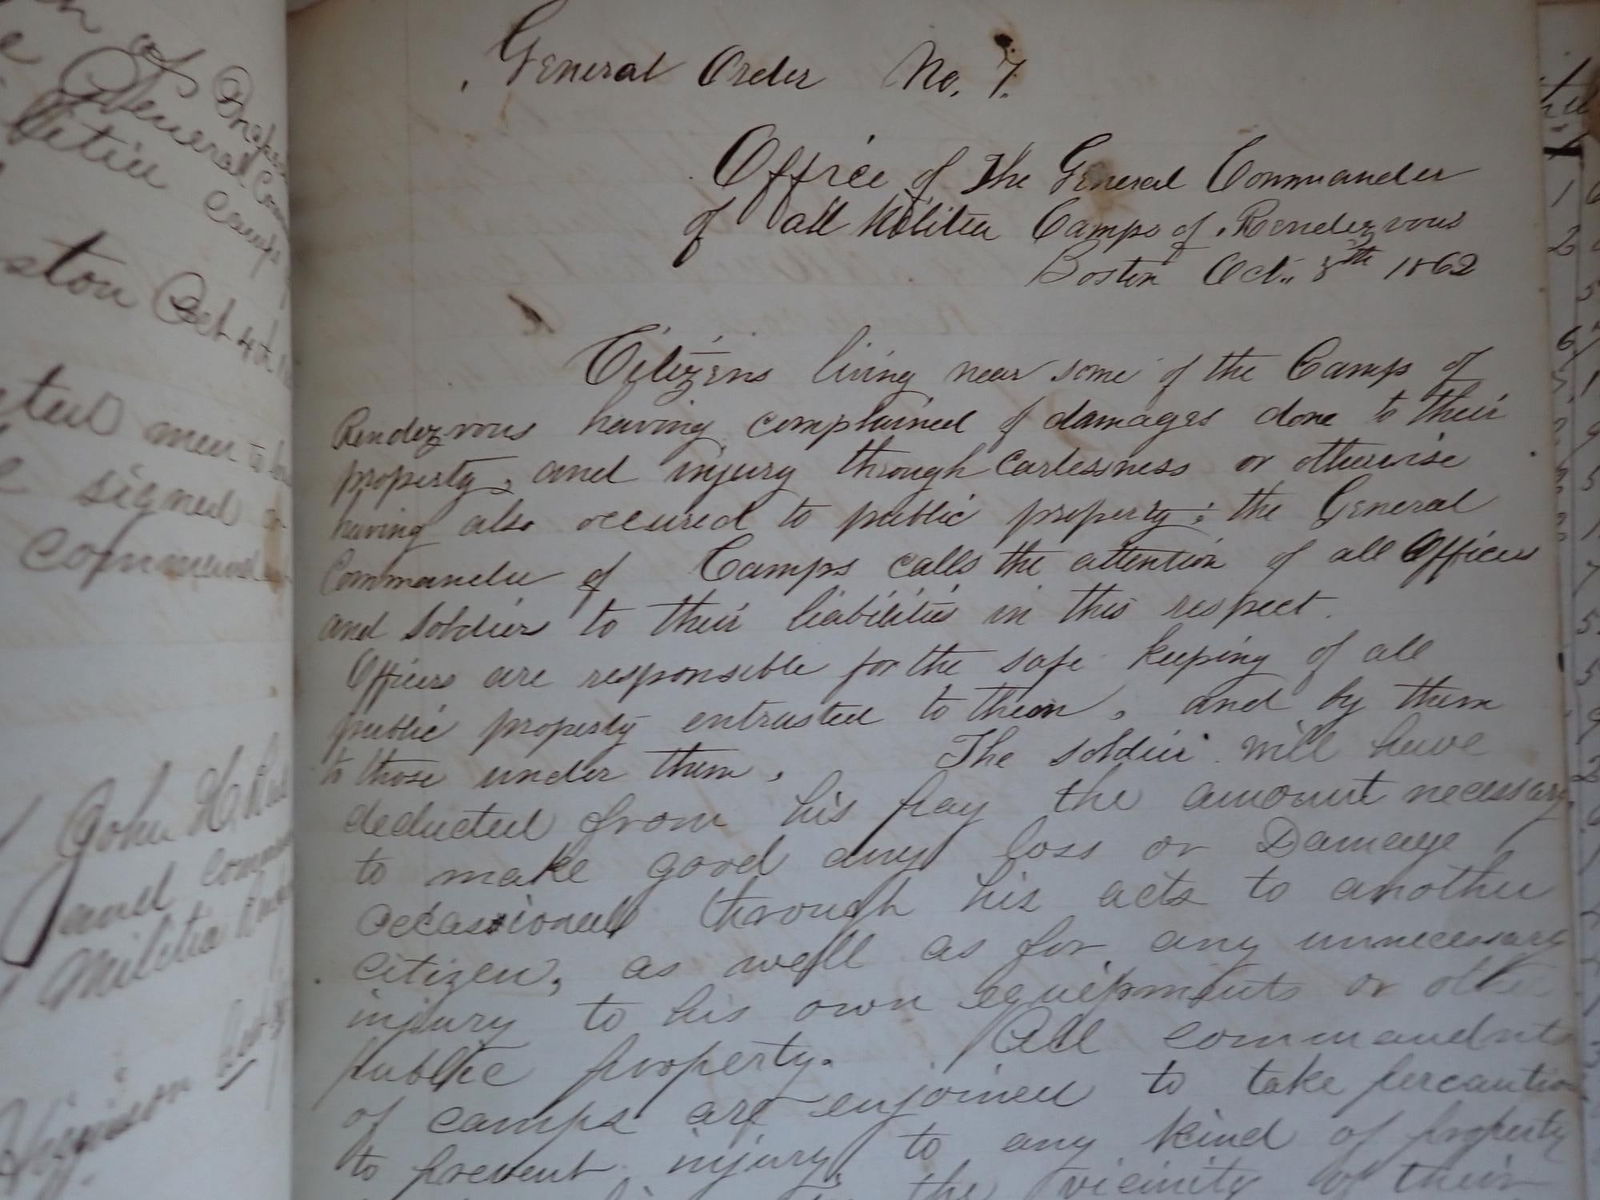 General Order No. 7.
Office of The General Commander
of all Militia Camps of Rendezvous
Boston Oct. 8th 1862
Citizens living near some of the Camps of
Rendezvous having complained of damages done to their
property, and injury through carlessness or otherwise
having also occured to public property: the General
Commander of Camps calls the attention of all Officers
and Soldiers to their liabilities in this respect.
Officers are responsible for the safe keeping of all
public property entrusted to them, and by them
to those under them. The soldier will have
deducted from his pay the amount necessary
to make good any loss or Damage
occassioned through his acts to another
citizen, as well as for any unnecessary
injury to his own equipments or other
public property. All commandnts
of camps are enjoined to take percaution
to prevent injury to any kind of property
the vicinity of their
of
General
camps
ston Oct 4th
men to
signed
command
John H.
and
Militia